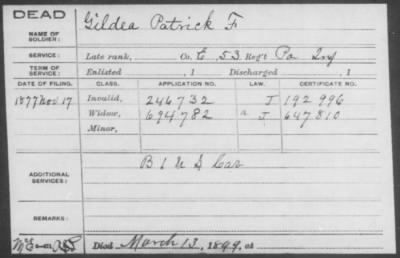 DEAD
NAME OF SOLDIER: Gildea Patrick F
SERVICE: Late rank, Co. E, 53 Reg't Pa Inf
TERM OF SERVICE: Enlisted , 1 Discharged , 1
DATE OF FILING. CLASS. APPLICATION NO. LAW. CERTIFICATE NO.
1877 Nov 17 Invalid, 246732 I 192 996
Widow, 694782 a I 647810
Minor,
ADDITIONAL SERVICES: B 1 U S Cav
REMARKS:
Died March 13, 1899, at